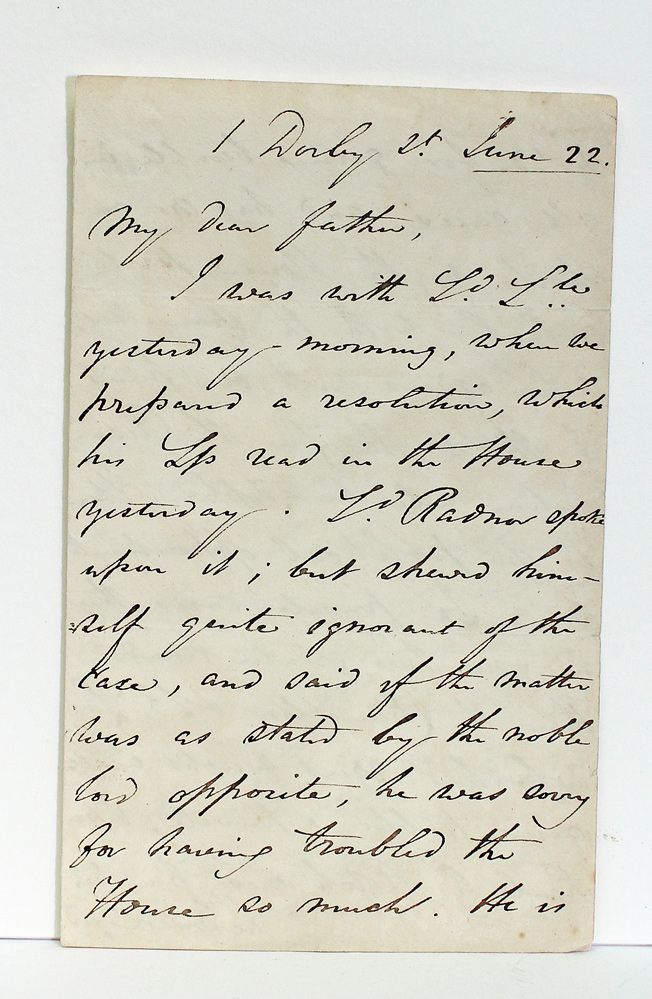 1 Derby St. June 22.
My dear father,
I was with Ld. Lle
yesterday morning, when we
prepared a resolution, which
his Lp read in the House
yesterday. Ld Radnor spoke
upon it; but shewed him-
=self quite ignorant of the
case, and said if the matter
was as stated by the noble
lord opposite, he was sorry
for having troubled the
House so much. He is